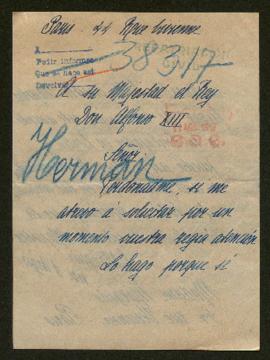 Paris
A
Pedir informes
Que se haga así
Devolver
38317
A su Majestad el Rey
Don Alfonso XIII
Hermán
Señor
Perdonadme, si me
atrevo á solicitar por un
momento vuestra regia atención.
Lo hago porque sé